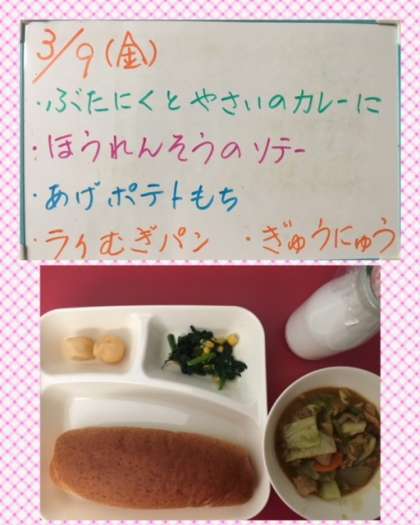 3/9(金)
・ぶたにくとやさいのカレーに
・ほうれんそうのソテー
・あげポテトもち
・ライむぎパン ・ぎゅうにゅう